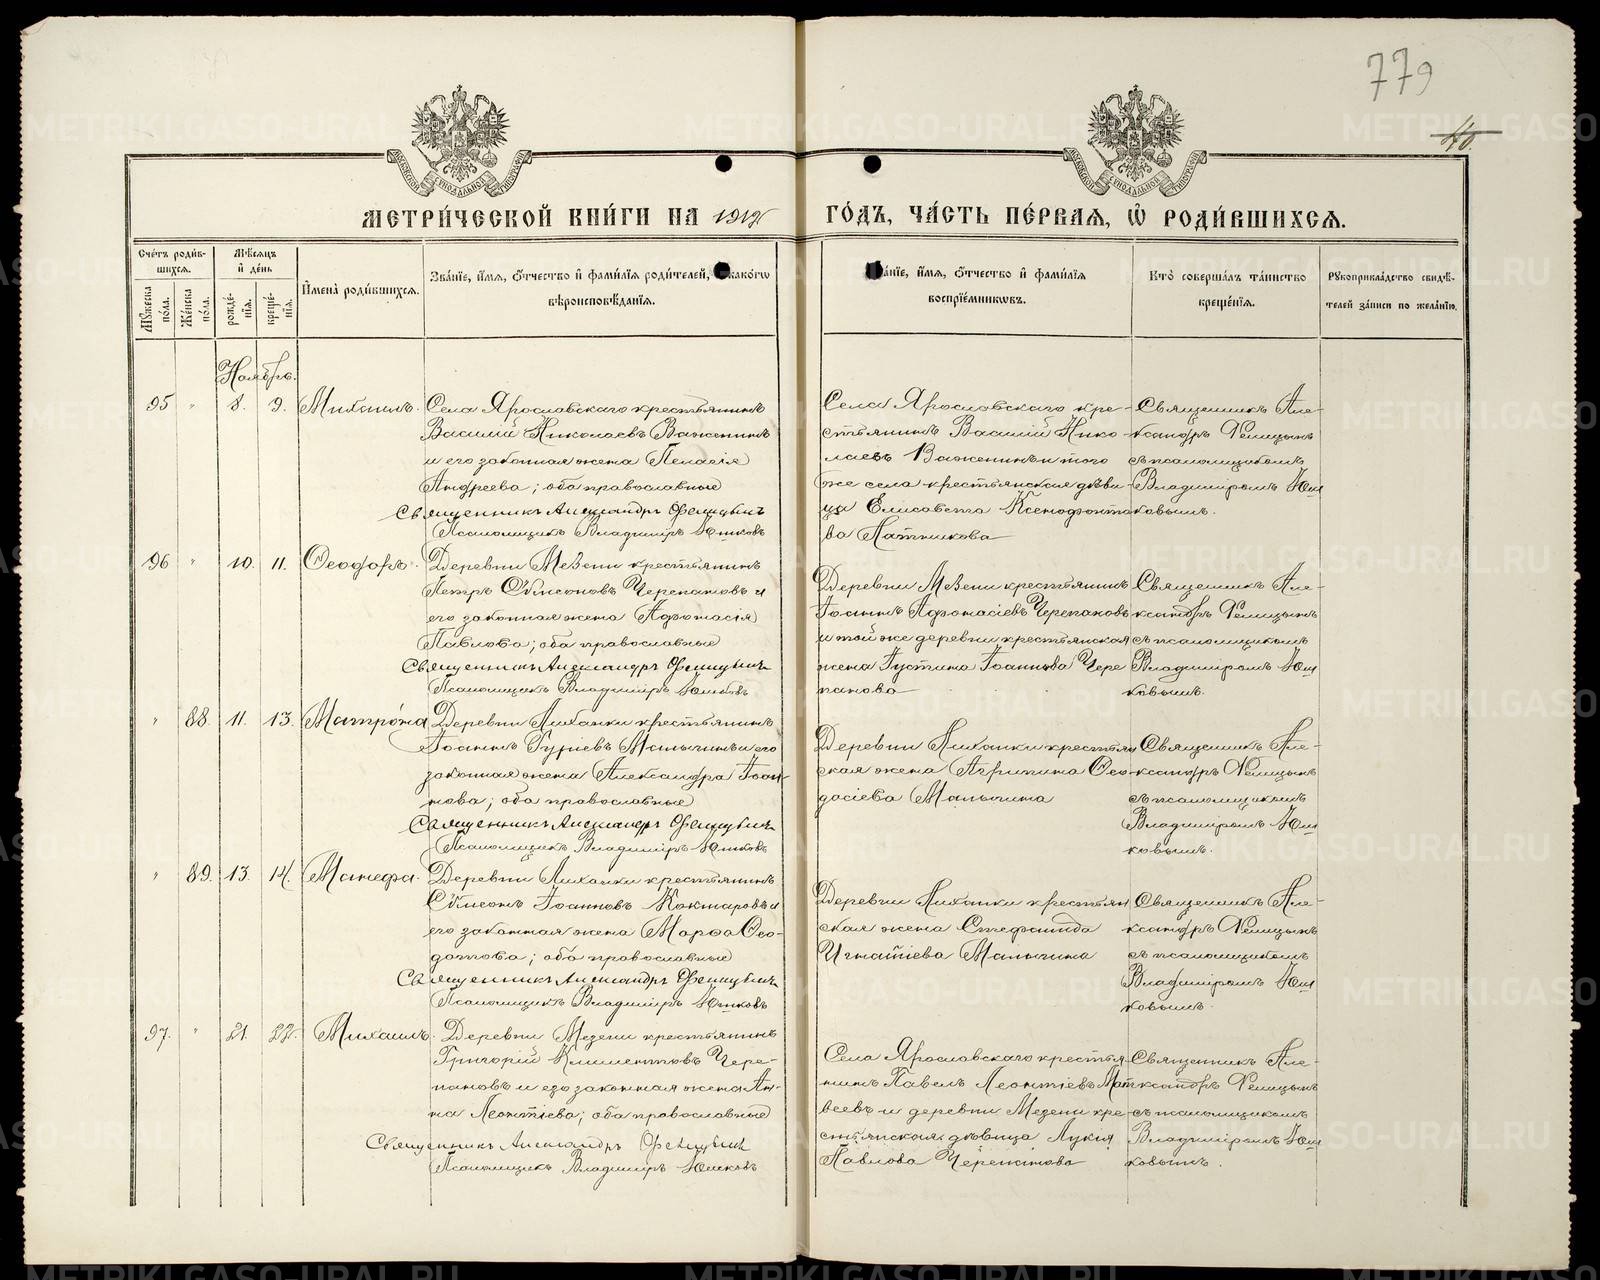 779
МЕТРИ́ЧЕСКОЙ КНИ́ГИ НА 1912 ГО́ДЪ, ЧА́СТЬ ПЕ́РВАЯ, Ѽ РОДИ́ВШИХСѦ.
Сче́тъ роди́в-
шихсѧ.
Мѣ́сѧцъ
и҆ де́нь
Мꙋ́жеска по́ла.
Же́нска по́ла.
рожде́-
нїѧ.
креще́-
нїѧ.
И҆мена̀ роди́вшихсѧ.
Зва́нїе, и҆́мѧ, ѻ҆́тчество и҆ фами́лїѧ роди́телей, како́гѡ
вѣроисповѣ́данїѧ.
ѻ҆́тчество и҆ фами́лїѧ
воспрїе́мникѡвъ.
Кто̀ соверша́лъ та́инство
креще́нїѧ.
Рꙋкоприкла́дство свидѣ́-
телей за́писи по жела́нїю.
Ноябрь.
95 " 8. 9. Михаилъ.
Села Ярославскаго крестьянинъ
Василій Николаевъ Важенинъ
и его законная жена Пелагія
Андреева; оба православные
Священникъ Александръ Флицынъ
Псаломщикъ Владиміръ Юшковъ
Села Ярославскаго кре-
стьянинъ Василій Нико-
лаевъ Важенинъ и того
же села крестьянская дѣви-
ца Елисавета Ксенофонто-
ва
Священникъ Але-
ксандръ
съ псаломщикомъ
Владиміромъ Юш
ковымъ.
96 " 10. 11. Ѳеодоръ.
Деревни Мезени крестьянинъ
Петръ Симеоновъ Черепановъ и
его законная жена Афанасія
Павлова; оба православные
Священникъ Александръ
Псаломщикъ Владиміръ Юшковъ
Деревни Мезени крестьянинъ
Іоаннъ Афанасіевъ Черепановъ
и той же деревни крестьянская
жена Іустина Іоаннова Чере
панова
Священникъ Але-
ксандръ
съ псаломщикомъ
Владиміромъ Юш
ковымъ.
" 88. 11. 13. Матрона
Деревни крестьянинъ
Іоаннъ Гуріевъ Малыгинъ и его
законная жена Александра Іоан-
нова; оба православные
Священникъ Александръ
Псаломщикъ Владиміръ Юшковъ
Деревни крестьян
ская жена Агрипина Ѳео-
досіева Малыгина
Священникъ Але-
ксандръ
съ псаломщикомъ
Владиміромъ Юш
ковымъ.
" 89. 13. 14. Манефа.
Деревни крестьянинъ
Симеонъ Іоанновъ и
его законная жена Марфа Ѳео-
дотова; оба православные
Священникъ Александръ
Псаломщикъ Владиміръ Юшковъ
Деревни крестьян
ская жена Стефанида
Игнатіева Малыгина
Священникъ Але-
ксандръ
съ псаломщикомъ
Владиміромъ Юш
ковымъ.
97. " 21. 22. Михаилъ.
Деревни Мезени крестьянинъ
Григорій Климентовъ Чере-
пановъ и его законная жена Ан-
на Леонтіева; оба православные
Священникъ Александръ
Псаломщикъ Владиміръ Юшковъ
Села Ярославскаго крестья
нинъ Павелъ Леонтіевъ Мат
веевъ и деревни Мезени кре-
стьянская дѣвица Лукія
Павлова Черепанова
Священникъ Але-
ксандръ
съ псаломщикомъ
Владиміромъ Юш
ковымъ.
METRIKI.GASO-URAL.RU